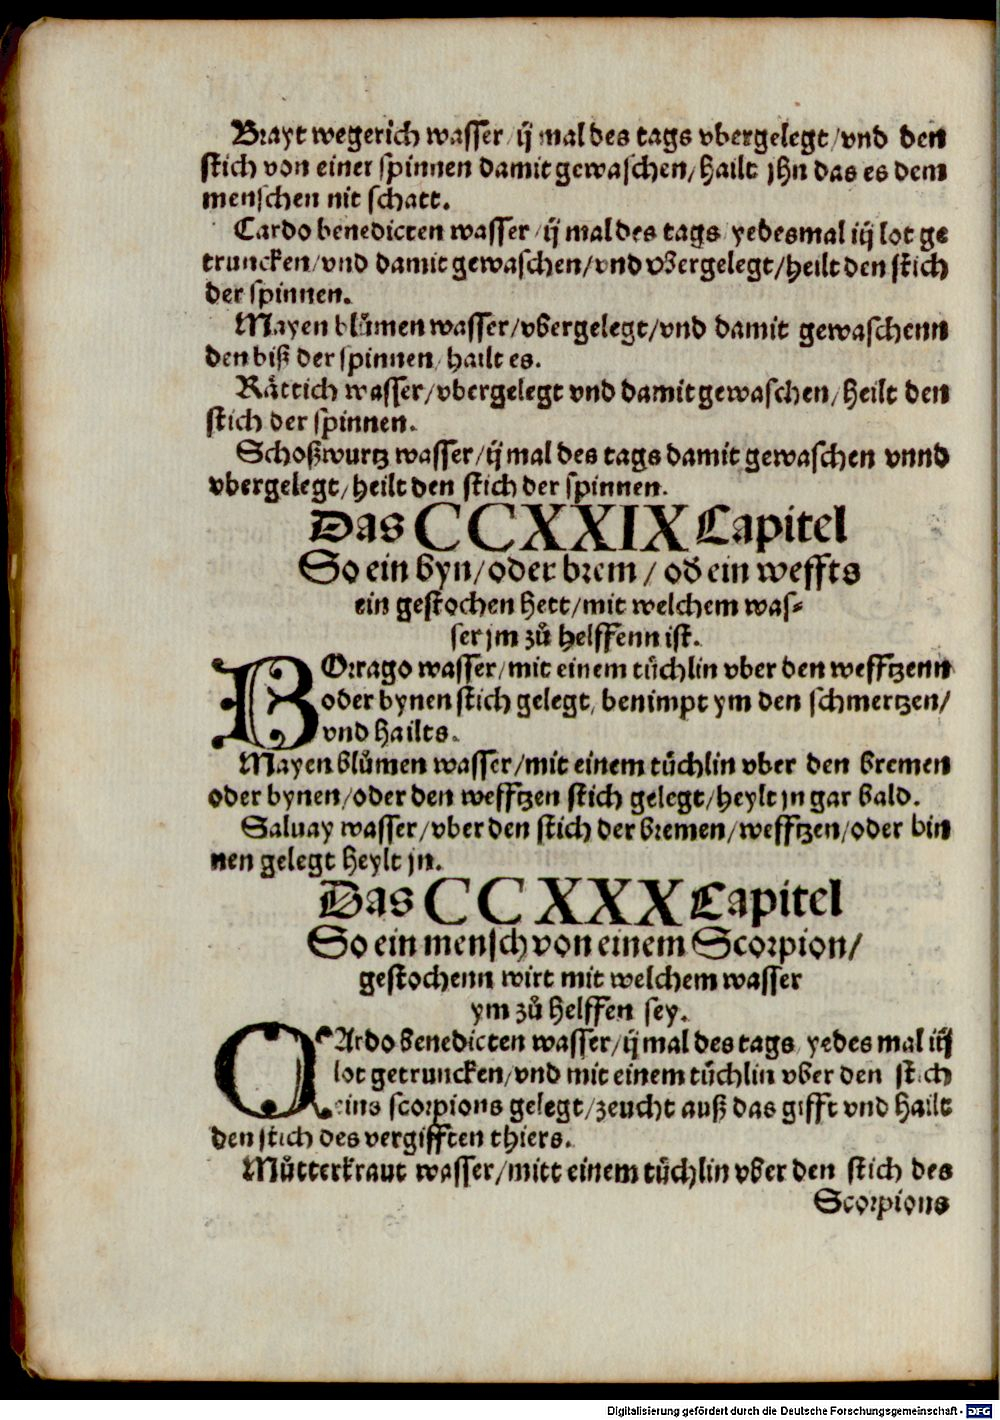 Brayt wegerich wasser / ij mal des tags vbergelegt / vnd den
stich von einer spinnen damit gewaschen / hailt jhn das es dem
menschen nit schatt.
Cardo benedicten wasser / ij mal des tags / yedesmal iij lot ge
truncken / vnd damit gewaschen / vnd vbergelegt / heilt den stich
der spinnen.
Mayen blůmen wasser / vbergelegt / vnd damit gewaschenn
den biß der spinnen / hailt es.
Råttich wasser / vbergelegt vnd damit gewaschen / heilt den
stich der spinnen.
Schoßwurtz wasser / ij mal des tags damit gewaschen vnnd
vbergelegt / heilt den stich der spinnen.
Das CCXXIX Capitel
So ein byn / oder brem / ob ein weffts
ein gestochen hett / mit welchem was⸗
ser jm zů helffenn ist.
BOrrago wasser / mit einem tůchlin vber den wefftzenn
oder bynen stich gelegt / benimpt ym den schmertzen /
vnd hailts.
Mayen blůmen wasser / mit einem tůchlin vber den bremen
oder bynen / oder den wefftzen stich gelegt / heylt jn gar bald.
Saluay wasser / vber den stich der bremen / wefftzen / oder bin
nen gelegt heylt jn.
Das CCXXX Capitel
So ein mensch von einem Scorpion /
gestochenn wirt mit welchem wasser
ym zů helffen sey.
CArdo benedicten wasser / ij mal des tags / yedes mal iiij
lot getruncken / vnd mit einem tůchlin vber den stich
eins scorpions gelegt / zeucht auß das gifft vnd hailt
den stich des vergifften thiers.
Můtterkraut wasser / mitt einem tůchlin vber den stich des
Scorpions
Digitalisierung gefördert durch die Deutsche Forschungsgemeinschaft - DFG